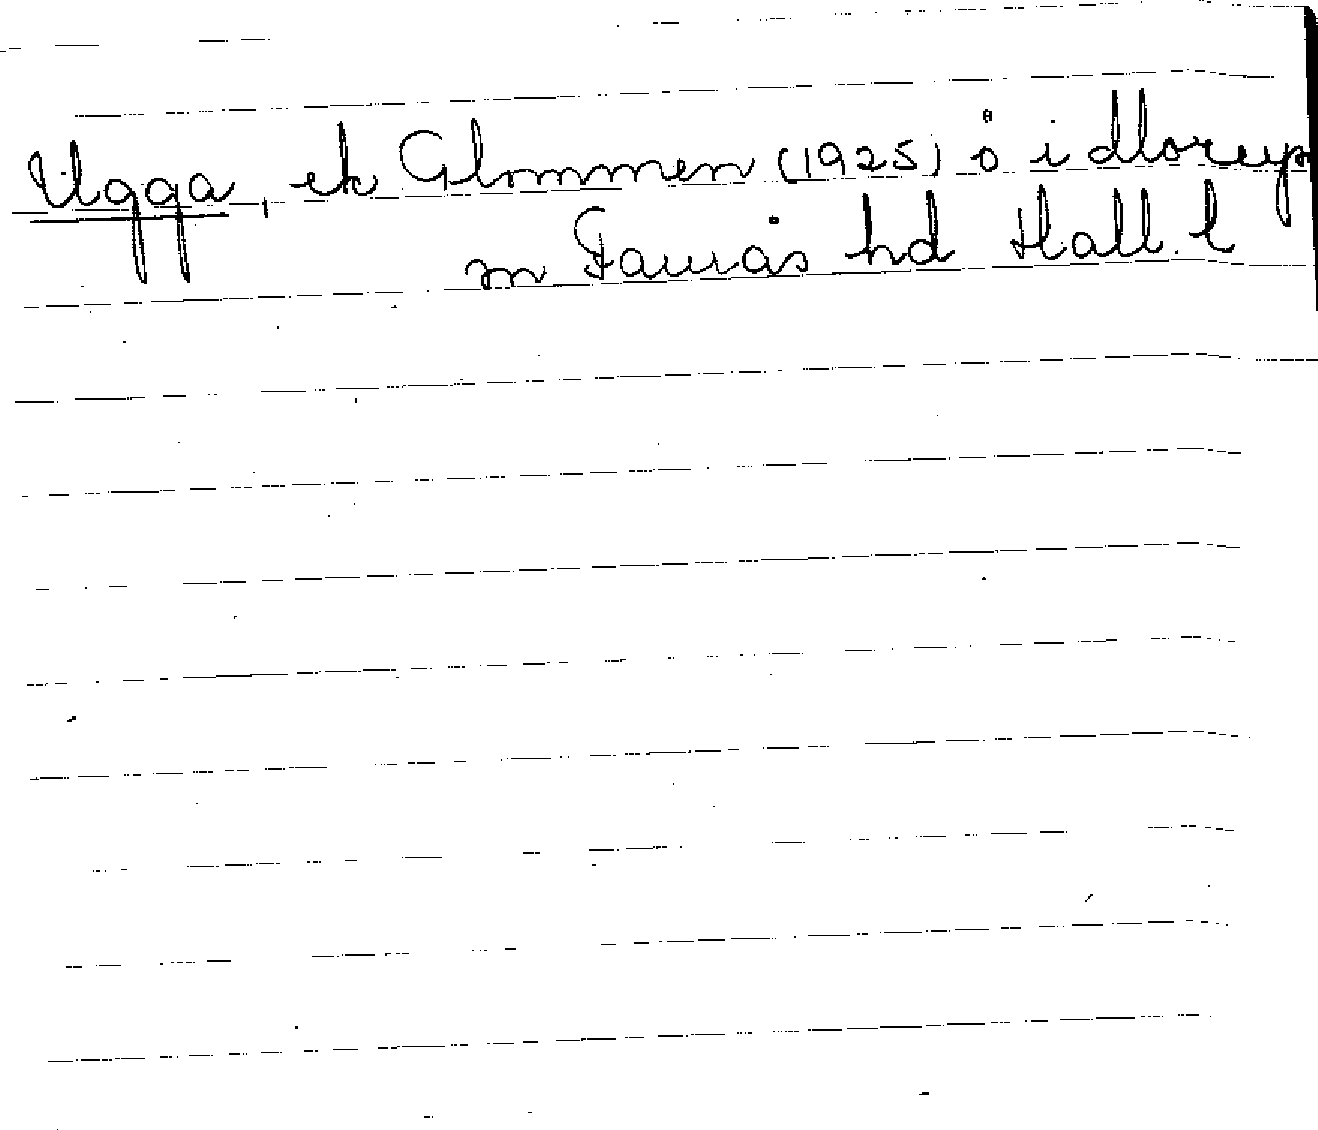 Ugga, ek Glommen (1925) å i Morup
sn Faurås hd Hall. l